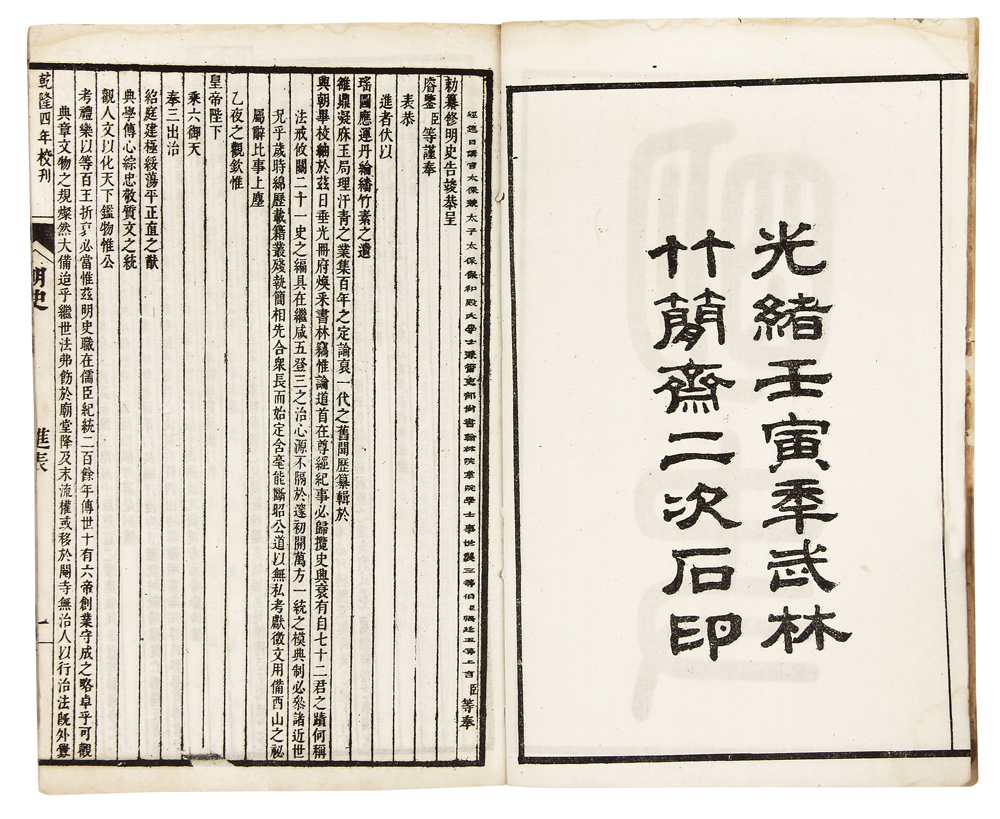 光緒壬寅秊武林
竹簡齋二次石印
經筵日講官太保兼太子太保保和殿大學士兼管吏部尚書翰林院掌院學士事世襲三等伯臣張廷玉等上言臣等奉
勅纂修明史告竣恭呈
睿鑒臣等謹奉
表恭
進者伏以
瑤圖應運丹綸繙竹素之遺
雒鼎凝庥玉局理汗青之業集百年之定論裒一代之舊聞歷纂輯於
興朝畢校紬於茲日垂光冊府煥采書林竊惟論道首在尊經紀事必歸攬史興衰有自七十二君之蹟何稱
法戒攸關二十一史之編具在繼咸五登三之治心源不隔於邃初開萬方一統之模典制必參諸近世
況乎歲時綿歷載籍叢殘執簡相先合衆長而始定含毫能斷昭公道以無私考獻徵文用備西山之秘
屬辭比事上塵
乙夜之觀欽惟
皇帝陛下
乘六御天
奉三出治
紹庭建極綏蕩平正直之猷
典學傳心綜忠敬質文之統
觀人文以化天下鑑物惟公
考禮樂以等百王折衷必當惟茲明史職在儒臣紀統二百餘年傳世十有六帝創業守成之略卓乎可觀
典章文物之規燦然大備迨乎繼世法弗飭於廟堂降及末流權或移於閹寺無治人以行治法旣外釁
乾隆四年校刊
明史
進表
一